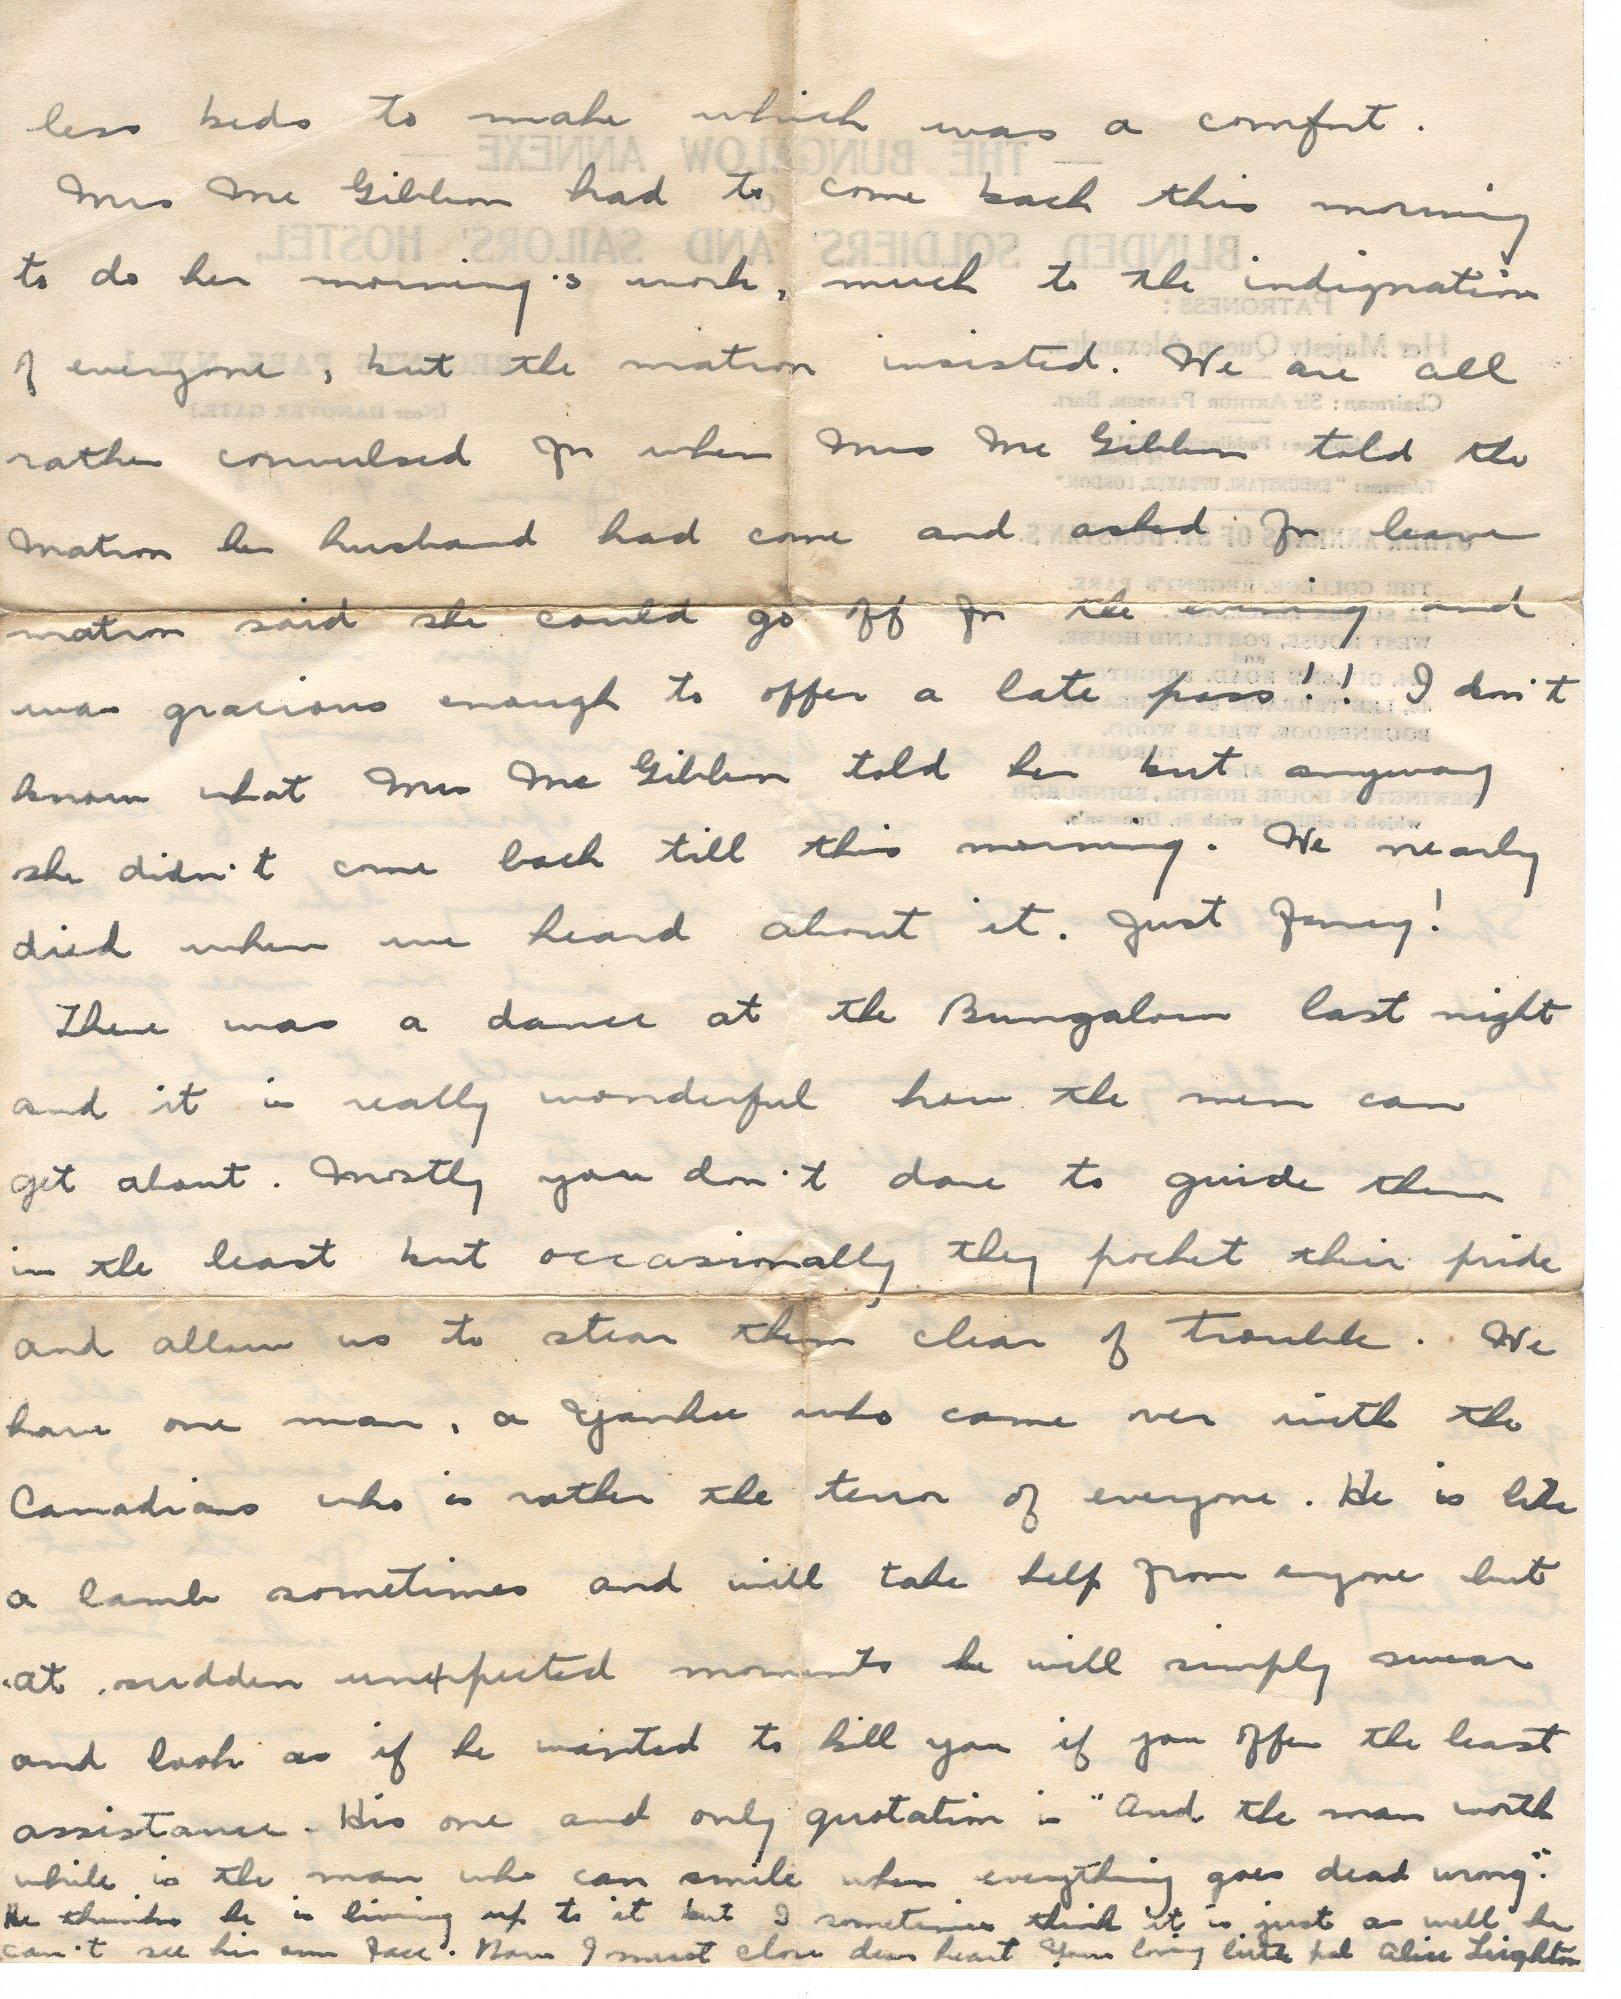 less beds to make which was a comfort.
Mrs Mc Gibbon had to come back this morning
to do her morning's work, much to the indignation
of everyone, but the matron insisted. We are all
rather convulsed for when Mrs Mc Gibbon told the
matron her husband had come and asked for leave
matron said she could go off for the evening and
was gracious enough to offer a late pass!! I don't
know what Mrs Mc Gibbon told her but anyway
she didn't come back till this morning. We nearly
died when we heard about it. Just fancy!
There was a dance at the Bungalow last night
and it is really wonderful how the men can
get about. Mostly you don't dare to guide them
in the least but occasionally they pocket their pride
and allow us to stear them clear of trouble. We
have one man, a Yankee who came over with the
Canadians who is rather the terror of everyone. He is like
a lamb sometimes and will take help from anyone but
at sudden unexpected moments he will simply swear
and look as if he wanted to kill you if you offer the least
assistance. His one and only quotation is "And the man worth
while is the man who can smile when everything goes dead wrong".
He thinks he is living up to it but I sometimes think it is just as well he
can't see his own face. Now I must close dear heart Your loving little pal Alice Leighton
— THE BUNGALOW ANNEXE —
BLINDED SOLDIERS' AND SAILORS' HOSTEL,
PATRONESS:
Her Majesty Queen Alexandra.
REGENT'S PARK, N.W.1.
(Near HANOVER GATE)
Chairman: Sir ARTHUR PEARSON, Bart.
OTHER ANNEXES OF ST. DUNSTAN'S.
THE COLLEGE, REGENT'S PARK.
WEST HOUSE, PORTLAND HOUSE,
and
TORQUAY.
NEWINGTON HOUSE HOSTEL, EDINBURGH
which is affiliated with St. Dunstan's.